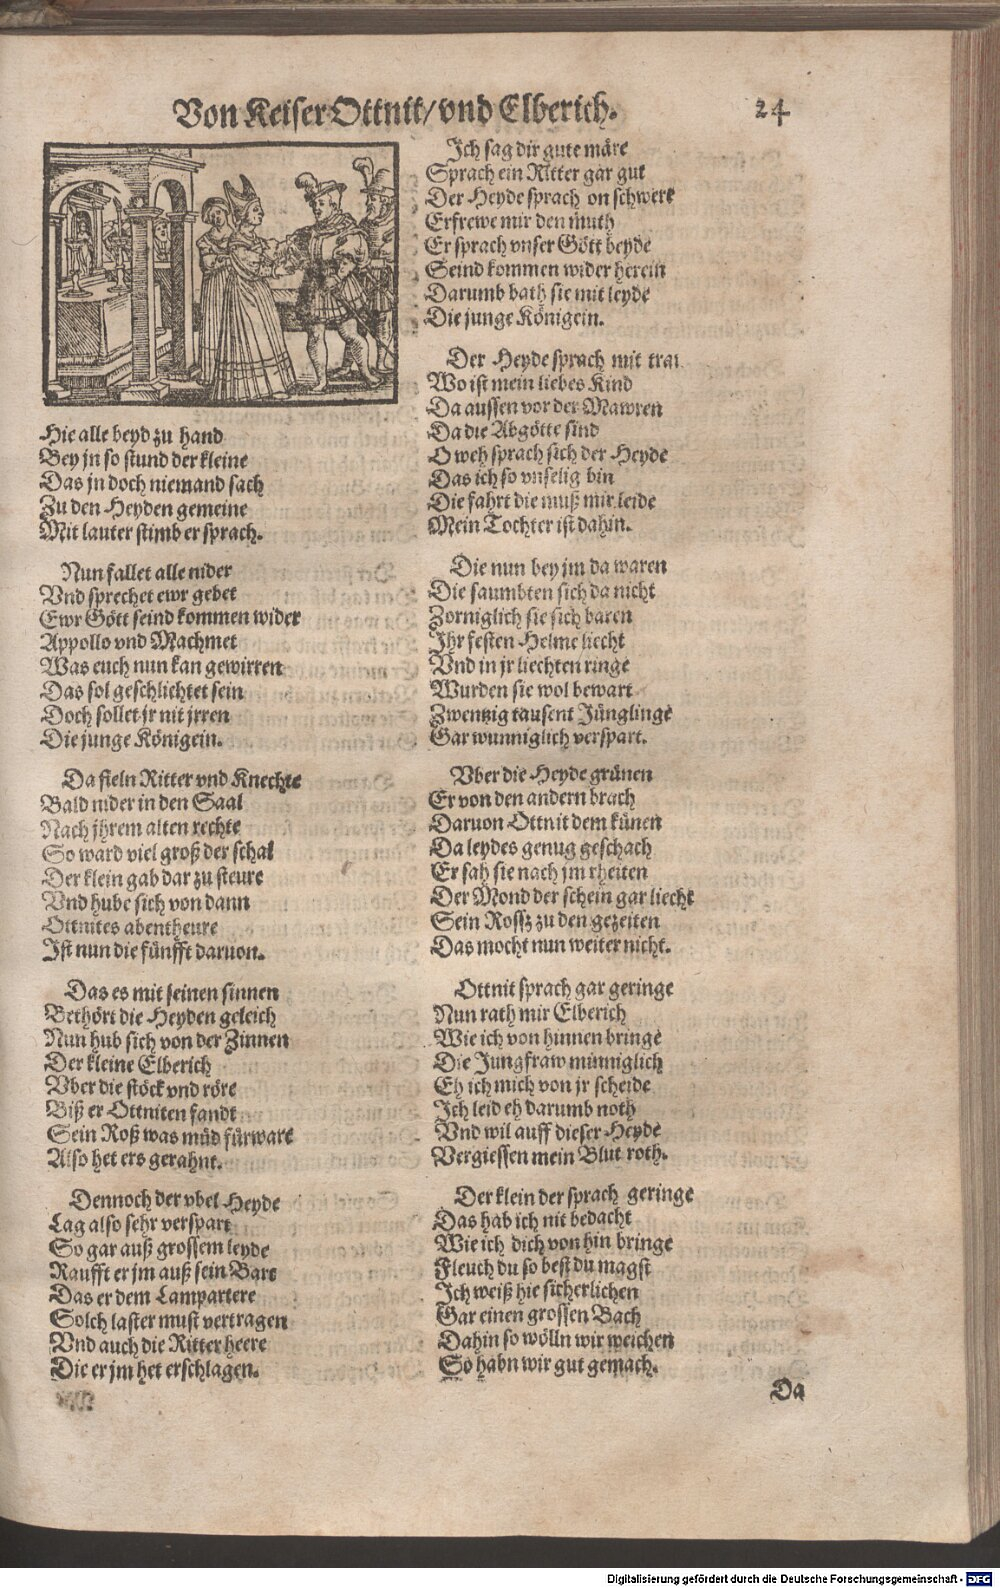 Von Keiser Ottnit/ vnd Elberich.
24
Hie alle beyd zu hand
Bey jn so stund der kleine
Das jn doch niemand sach
Zu den Heyden gemeine
Mit lauter stimb er sprach.
Nun fallet alle nider
Vnd sprechet ewr gebet
Ewr Gött seind kommen wider
Appollo vnd Machmet
Was euch nun kan gewirren
Das sol geschlichtet sein
Doch sollet jr nit jrren
Die junge Königein.
Da fieln Ritter vnd Knechte
Bald nider in den Saal
Nach jhrem alten rechte
So ward viel groß der schal
Der klein gab dar zu steure
Vnd hube sich von dann
Ottnites abentheure
Ist nun die fünfft daruon.
Das es mit seinen sinnen
Bethört die Heyden geleich
Nun hub sich von der Zinnen
Der kleine Elberich
Vber die stöck vnd röre
Biß er Ottniten fandt
Sein Roß was müd fürware
Also het ers gerahnt.
Dennoch der vbel Heyde
Lag also sehr verspart
So gar auß grossem leyde
Raufft er jm auß sein Bart
Das er dem Lampartere
Solch laster must vertragen
Vnd auch die Ritter heere
Die er jm het erschlagen.
Ich sag dir gute märe
Sprach ein Ritter gar gut
Der Heyde sprach on schwere
Erfrewe mir den muth
Er sprach vnser Gött beyde
Seind kommen wider herein
Darumb bath sie mit leyde
Die junge Königein.
Der Heyde sprach mit
Wo ist mein liebes Kind
Da aussen vor der Mawren
Da die Abgötte sind
O weh sprach sich der Heyde
Das ich so vnselig bin
Die fahrt die muß mir leide
Mein Tochter ist dahin.
Die nun bey jm da waren
Die saumbten sich da nicht
Zorniglich sie sich baren
Ihr festen Helme liecht
Vnd in jr liechten ringe
Wurden sie wol bewart
Zwentzig tausent Jünglinge
Gar wunniglich verspart.
Vber die Heyde grünen
Er von den andern brach
Daruon Ottnit dem künen
Da leydes genug geschach
Er sah sie nach jm rheiten
Der Mond der schein gar liecht
Sein Rossz zu den gezeiten
Das mocht nun weiter nicht.
Ottnit sprach gar geringe
Nun rath mir Elberich
Wie ich von hinnen bringe
Die Jungfraw minniglich
Eh ich mich von jr scheide
Ich leid eh darumb noth
Vnd wil auff dieser Heyde
Vergiessen mein Blut roth.
Der klein der sprach geringe
Das hab ich nit bedacht
Wie ich dich von hin bringe
Fleuch du so best du magst
Ich weiß hie sicherlichen
Gar einen grossen Bach
Dahin so wölln wir weichen
So habn wir gut gemach.
Da
Digitalisierung gefördert durch die Deutsche Forschungsgemeinschaft - DFG